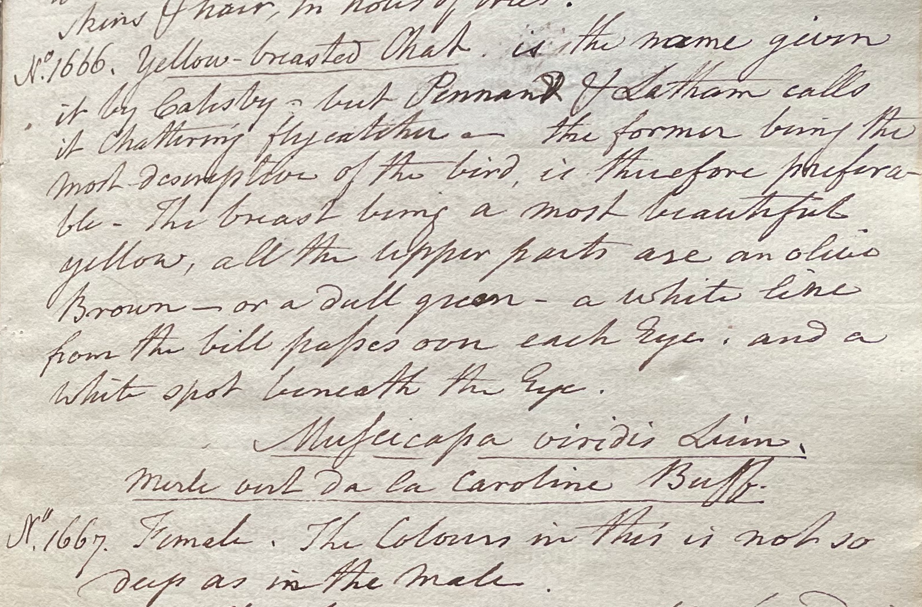 skins & hair, in holes of trees.
No. 1666. Yellow-breasted Chat. is the name given
it by Catesby - but Pennant & Latham calls
it Chattering flycatcher - the former being the
most descriptive of the bird, is therefore prefera-
ble - The breast being a most beautiful
yellow, all the upper parts are an olive
Brown - or a dull green - a white line
from the bill passes over each Eye. and a
white spot beneath the Eye.
Muscicapa viridis Linn.
Merle vert da la Caroline Buff.
No. 1667. Female. The Colours in this is not so
deep as in the male.